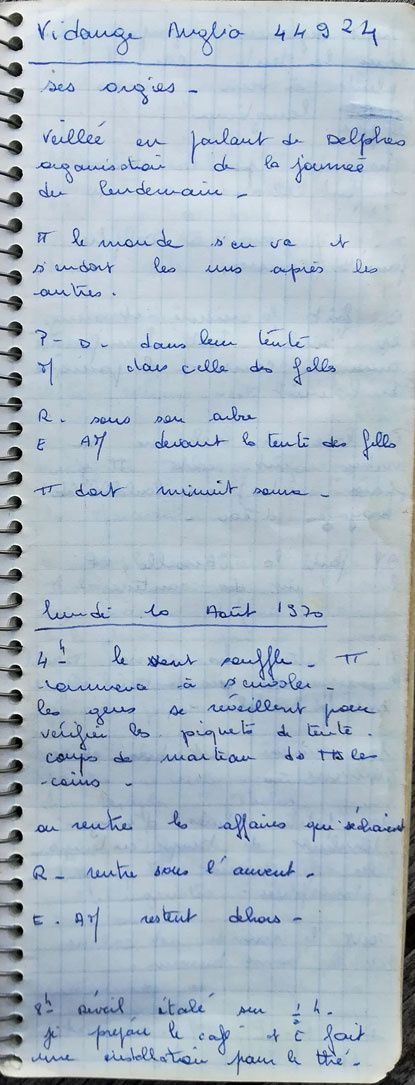 Vidange Anglia 44924
ses orgies -
veillée en parlant de Delphes
organisation de la journée
du lendemain -
π le monde s'en va et
s'endort les uns après les
autres.
P - D - dans leur tente
M dans celle des filles
R - sous son arbre
E AM devant la tente des filles
π dort minuit sonna -
lundi 10 Août 1970
4h le vent souffle - π
commence à s'envoler -
les gens se réveillent pour
vérifier les piquets de tente -
coups de marteau ds TS les
coins -
on rentre les affaires qui séchaient
R - rentre sous l'auvent -
E - AM restent dehors -
8h réveil étalé sur ½ h -
je prépare le café et E fait
une installation pour le thé -